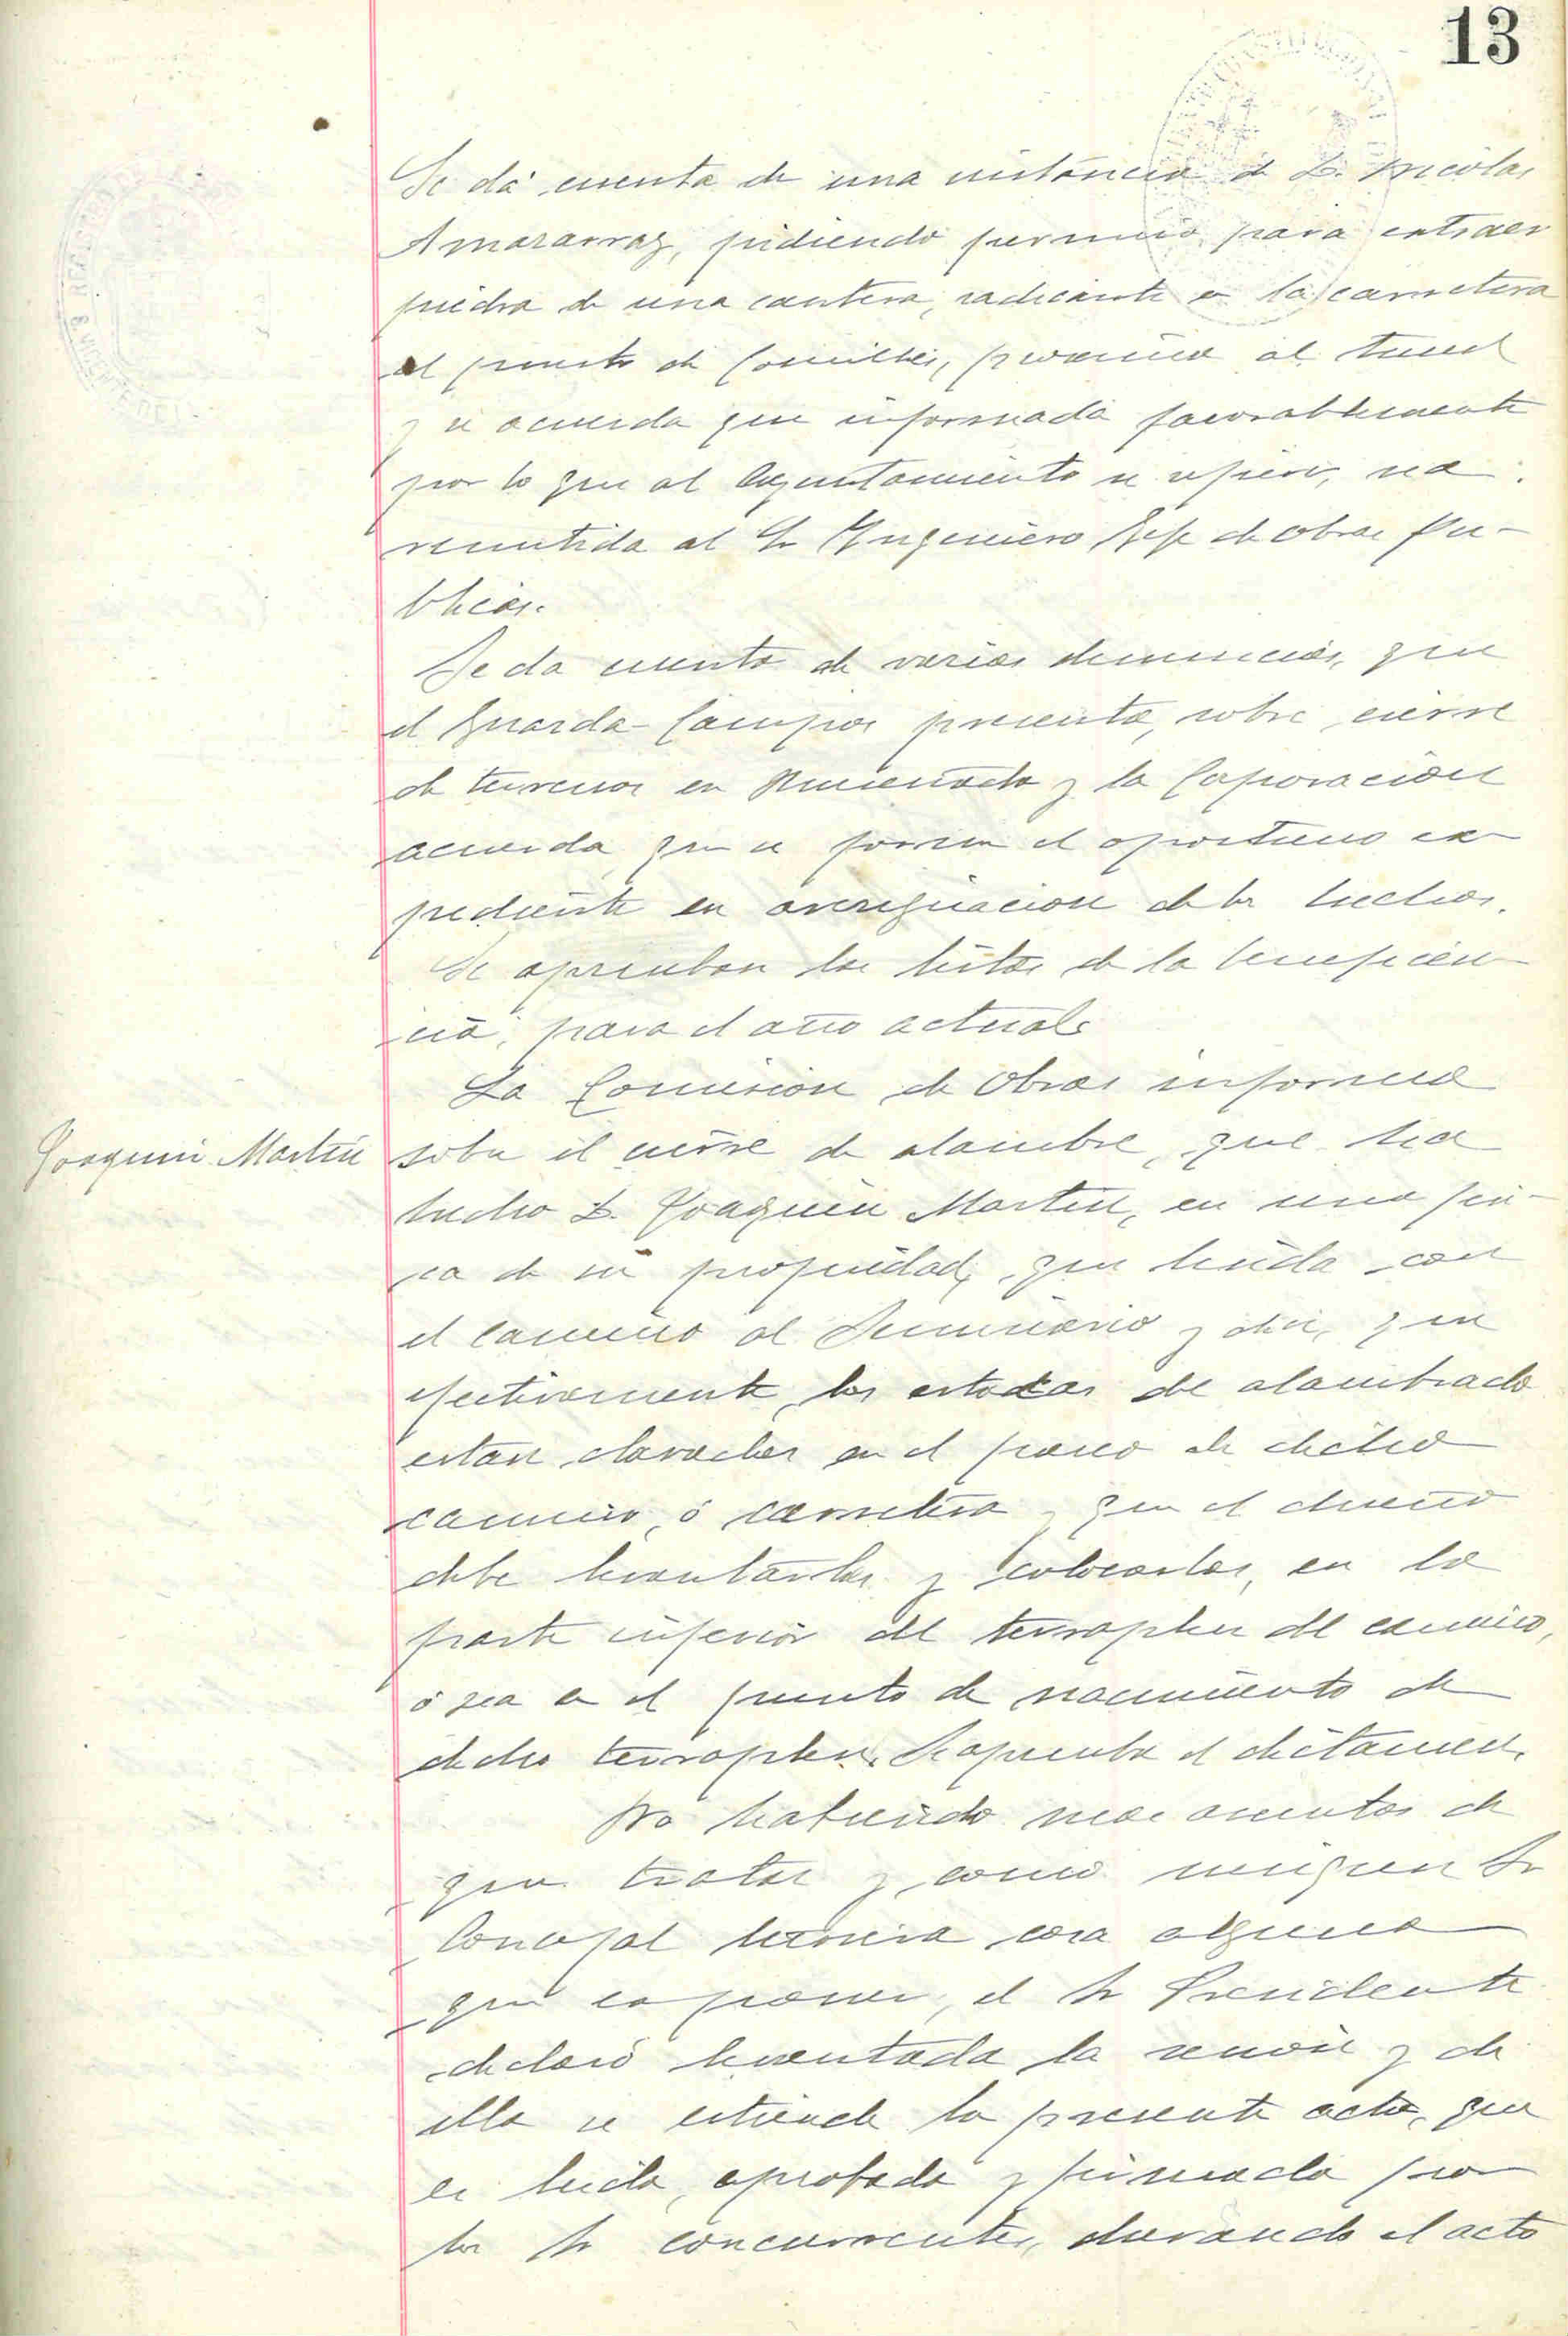 13
Se dá cuenta de una instancia de D. Nicolas
Amararraz, pidiendo permiso para extraer
piedra de una cantera, radicante en la carretera
al puerto de Comillas, proxima al tunel
y se acuerda que informada favorablemente
por lo que al Ayuntamiento se refiere, sea
remitida al Sr Yngeniero Jefe de obras Pu-
blicas.
Se da cuenta de varias denuncias, que
el Guarda-Campos presenta, sobre cierre
de terrenos en y la Corporacion
acuerda que se forme el oportuno ex-
pediente en averiguacion de los hechos.
Se aprueban las listas de la beneficen-
cia, para el año actual.
La Comision de Obras informa
Joaquin Martin
sobre el cierre de alambre, que ha
hecho D. Joaquin Martin, en una fin-
ca de su propiedad, que linda con
el camino al Seminario y dice, que
efectivamente, las estacas del alambrado
estan clavadas en el paseo de dicho
camino, ó carretera y que el dueño
debe levantarlas y colocarlas, en la
parte inferior del terraplen del camino,
ó sea en el punto de nacimiento de
dicho terraplen. Se aprueba el dictamen.
No habiendo mas asuntos de
que tratar y como ningun Sr
Concejal tuviera cosa alguna
que exponer, el Sr Presidente
declaró levantada la sesión y de
ella se extiende la presente acta, que
es leida, aprobada y firmada por
los Sr concurrentes, durando el acto